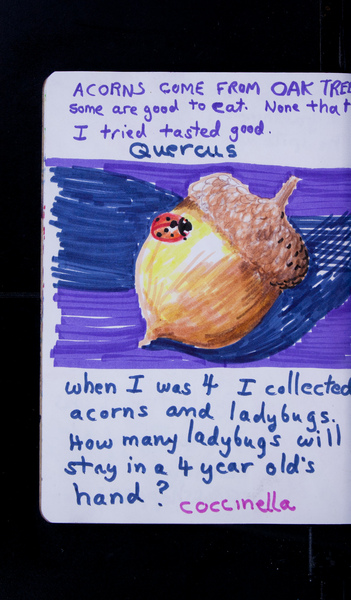 ACORNS COME FROM OAK TREE
some are good to eat. None that
I tried tasted good.
Quercus
when I was 4 I collected
acorns and ladybugs.
How many ladybugs will
stay in a 4 year old's
hand?
coccinella